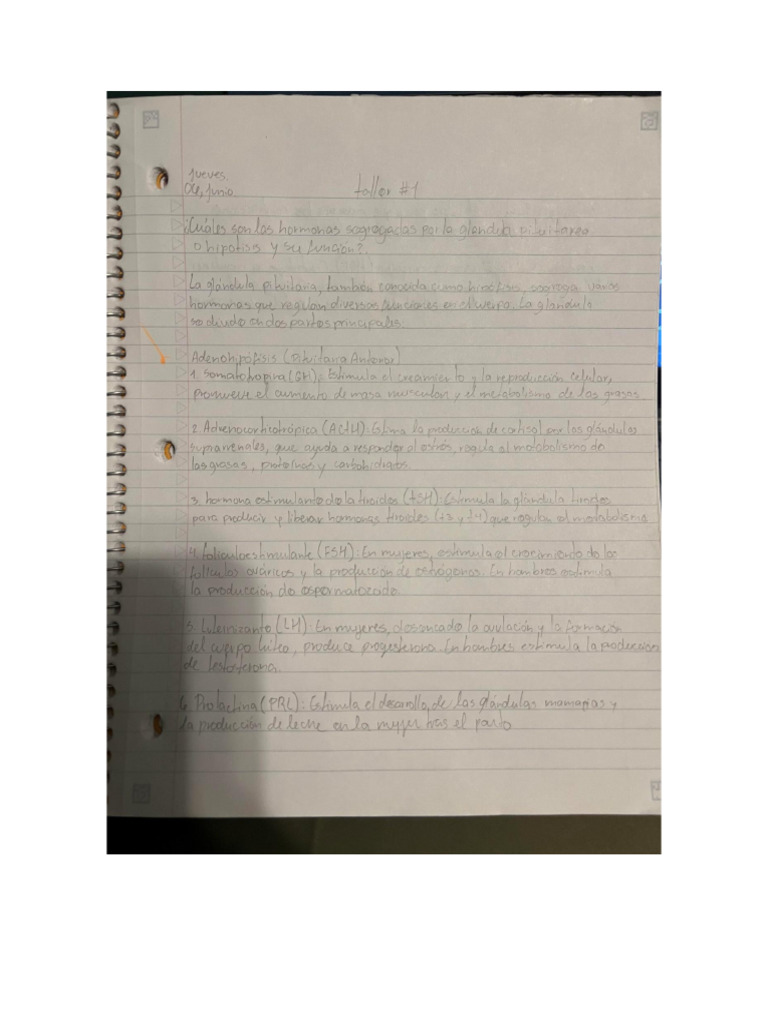 Jueves.
04, Junio.
taller #1
¿Cuáles son las hormonas segregadas por la glándula pituitarea
o hipofisis y su función?
La glándula pituitaria, también conocida como hipófisis, segrega varias
hormonas que regulan diversas funciones en el cuerpo. La glandula
se divide en dos partes principales:
Adenohipófisis (Pituitaria Anterior)
1. Somatotropina (GH): Estimula el crecimiento y la reproducción celular,
promueve el aumento de masa muscular y el metabolismo de las grasas
2. Adrenocorticotrópica (ACTH): la producción de cortisol por las glándulas
suprarrenales, que ayuda a responder al estrés, regula el metabolismo de
las grasas, proteínas y carbohidratos.
3. hormona estimulante de la tiroides (TSH): Estimula la glándula tiroides
para producir y liberar hormonas tiroides (t3 y t4) que regulan el metabolismo
4. foliculoestimulante (FSH): En mujeres, estimula el crecimiento de los
folículos ováricos y la producción de estrógenos. En hombres estimula
la producción de espermatozoide.
5. Luteinizante (LH): En mujeres, desencade la ovulación y la formación
del cuerpo lúteo, produce progesterona. En hombres estimula la producción
de testosterona.
6. Prolactina (PRL): Estimula el desarrollo de las glándulas mamarias y
la producción de leche en la mujer tras el parto